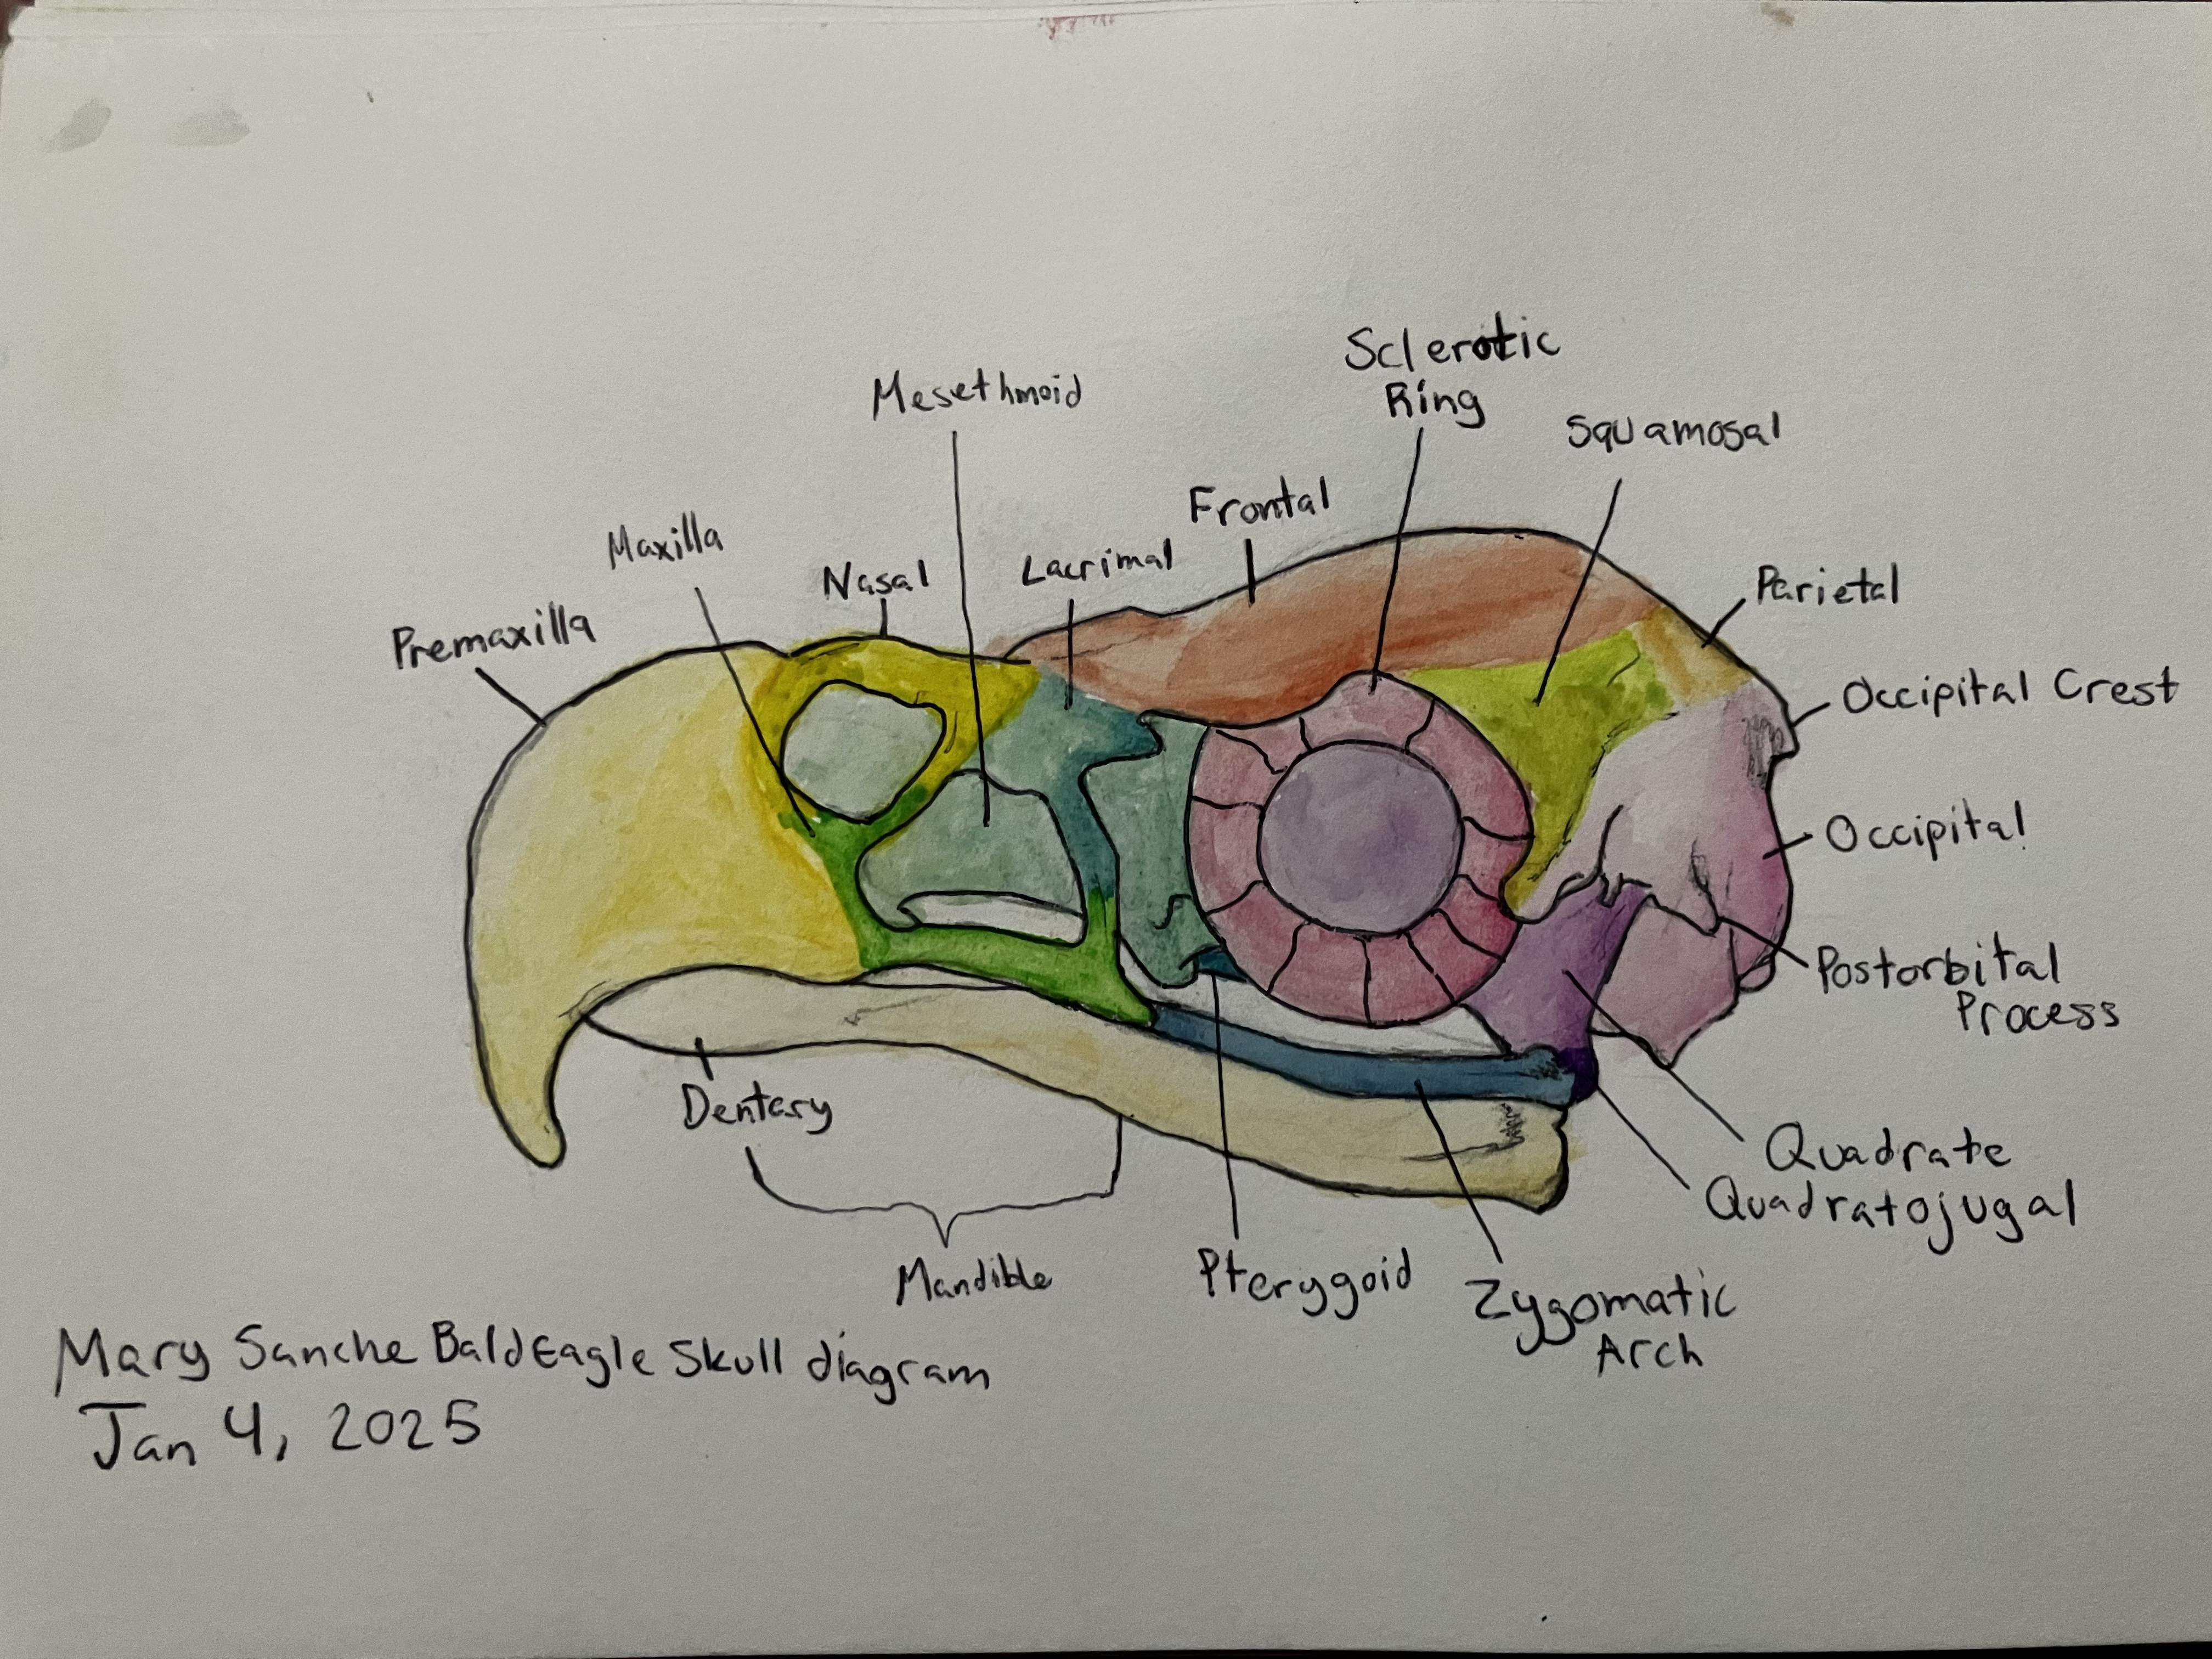 Sclerotic
Ring
Mesethmoid
Squamosal
Frontal
Maxilla
Nasal
Lacrimal
Parietal
Premaxilla
Occipital Crest
Occipital
Postorbital
Process
Dentary
Quadrate
Quadratojugal
Mandible
Pterygoid
Zygomatic
Arch
Mary Sanche Bald Eagle Skull diagram
Jan 4, 2025